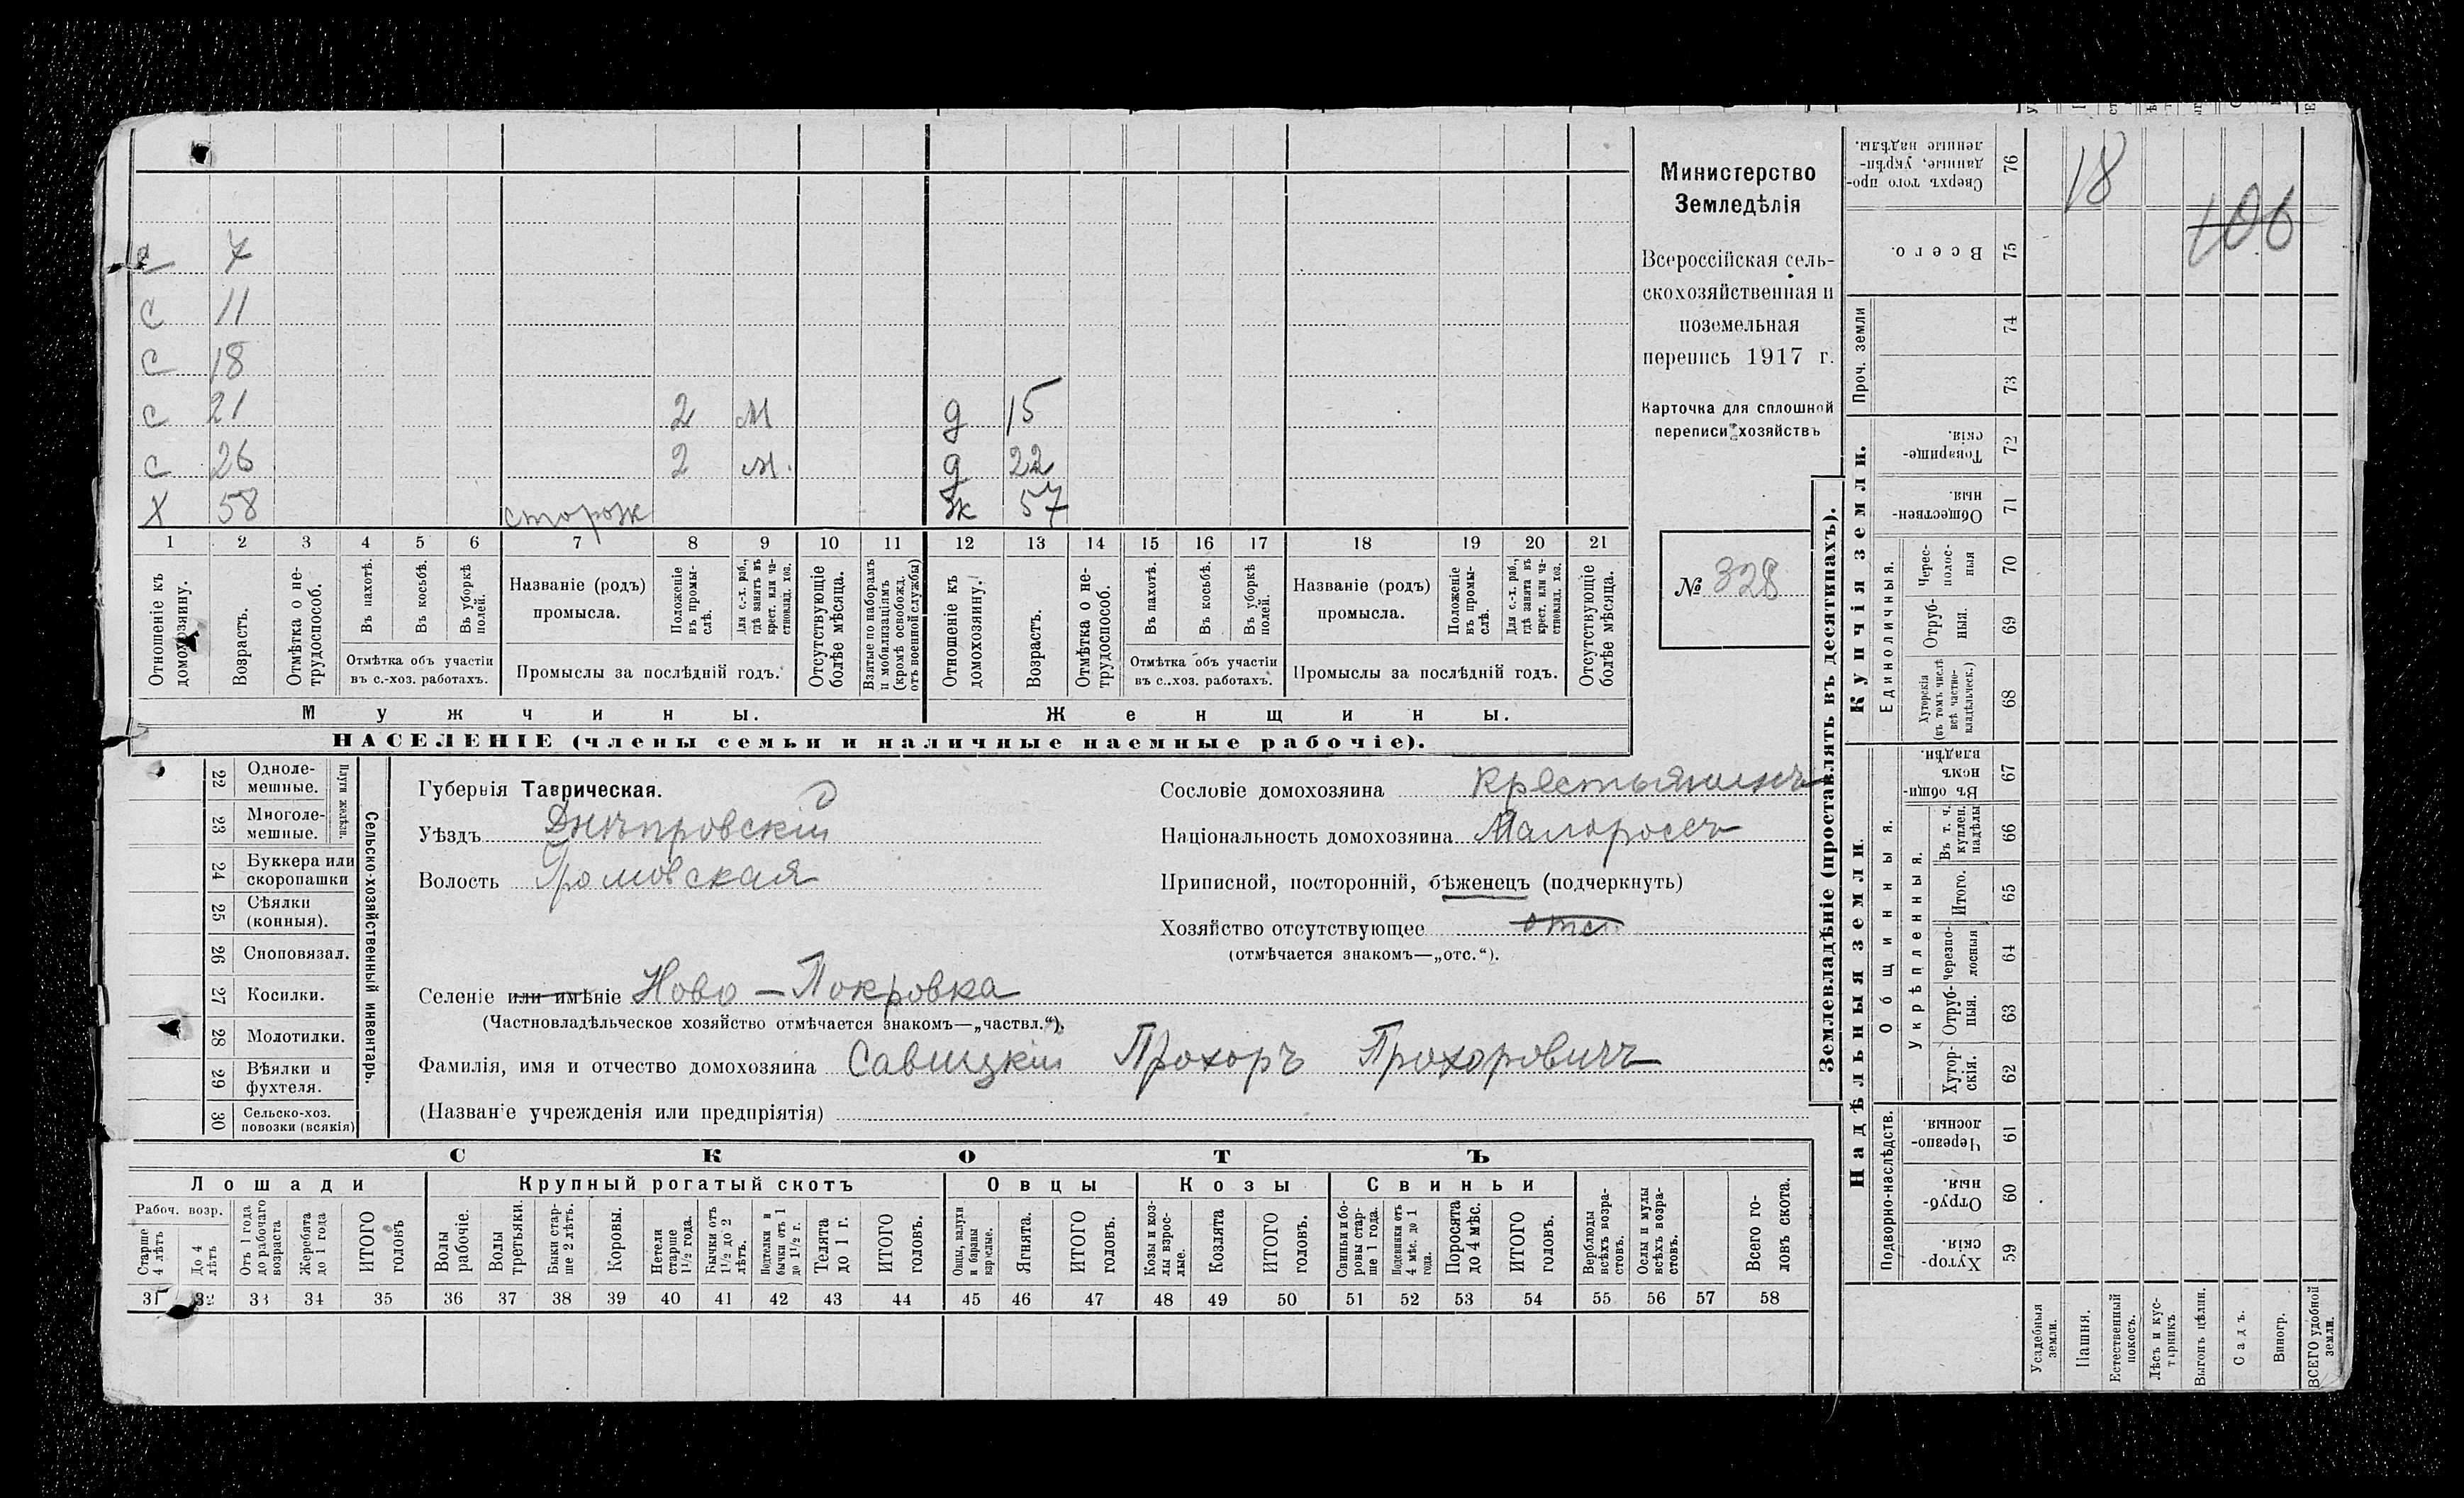 с 7
с 11
с 18
с 21 2 м д 15
с 26 2 м. д 22
х 58 сторож ж 57
1 2 3 4 5 6 7 8 9 10 11 12 13 14 15 16 17 18 19 20 21
Отношеніе къ домохозяину.
Возрастъ.
Отмѣтка о не-трудоспособ.
Въ пахотѣ.
Въ косьбѣ.
Въ уборкѣ полей.
Отмѣтка объ участіи въ с.-хоз. работахъ.
Названіе (родъ) промысла.
Положеніе въ промы-слѣ.
Для с.-х. раб., гдѣ занятъ въ крест. или ча-стновлад. хоз.
Промыслы за послѣдній годъ.
Отсутствующіе болѣе мѣсяца.
Взятые по наборамъ и мобилизаціямъ (кромѣ освобожд. отъ военной службы)
Отношеніе къ домохозяину.
Возрастъ.
Отмѣтка о не-трудоспособ.
Въ пахотѣ.
Въ косьбѣ.
Въ уборкѣ полей.
Отмѣтка объ участіи въ с.-хоз. работахъ.
Названіе (родъ) промысла.
Положеніе въ промы-слѣ.
Для с.-х. раб., гдѣ занята въ крест. или ча-стновлад. хоз.
Промыслы за послѣдній годъ.
Отсутствующіе болѣе мѣсяца.
Мужчины. Женщины.
НАСЕЛЕНІЕ (члены семьи и наличные наемные рабочіе).
Министерство
Земледѣлія
Всероссійская сель-
скохозяйственная и
поземельная
перепись 1917 г.
Карточка для сплошной
переписи хозяйствъ
№ 328
22 Одноле-мешные.
23 Многоле-мешные.
Плуги желѣзн.
24 Буккера или скоропашки
25 Сѣялки (конныя).
26 Сноповязал.
27 Косилки.
28 Молотилки.
29 Вѣялки и фухтеля.
30 Сельско-хоз. повозки (всякія)
Сельско-хозяйственный инвентарь.
Губернія Таврическая.
Уѣздъ Днѣпровскій
Волость Громовская
Селеніе или имѣніе Ново-Покровка
(Частновладѣльческое хозяйство отмѣчается знакомъ—„частвл.“).
Фамилія, имя и отчество домохозяина Савицкій Прохоръ Прохоровичъ
(Названіе учрежденія или предпріятія)
Сословіе домохозяина крестьянинъ
Національность домохозяина Малороссъ
Приписной, посторонній, бѣженецъ (подчеркнуть)
Хозяйство отсутствующее отс.
(отмѣчается знакомъ—„отс.“).
СКОТЪ
Лошади Крупный рогатый скотъ Овцы Козы Свиньи
Рабоч. возр.
Старше 4 лѣтъ
До 4 лѣтъ
Отъ 1 года до рабочаго возраста
Жеребята до 1 года
ИТОГО головъ
Волы рабочіе.
Волы третьяки.
Быки стар-ше 2 лѣтъ.
Коровы.
Нетели старше 1½ года.
Бычки отъ 1½ до 2 лѣтъ.
Подтелки и бычки отъ 1 до 1½ г.
Телята до 1 г.
ИТОГО головъ.
Овцы, валухи и бараны взрослые.
Ягнята.
ИТОГО головъ.
Козы и коз-лы взрос-лые.
Козлята
ИТОГО головъ.
Свиньи и бо-ровы стар-ше 1 года.
Подсвинки отъ 4 мѣс. до 1 года.
Поросята до 4 мѣс.
ИТОГО головъ.
Верблюды всѣхъ возра-стовъ.
Ослы и мулы всѣхъ возра-стовъ.
Всего го-ловъ скота.
31 32 33 34 35 36 37 38 39 40 41 42 43 44 45 46 47 48 49 50 51 52 53 54 55 56 57 58
Землевладѣніе (проставлять въ десятинахъ).
Надѣльныя земли. Купчія земли. Проч. земли
Подворно-наслѣдств.
Общинныя.
Укрѣпленныя.
Единоличныя.
Хутор-скія. 59
Отруб-ныя. 60
Черезпо-лосныя. 61
Хутор-скія. 62
Отруб-ныя. 63
Черезпо-лосныя 64
Итого. 65
Въ т. ч. куплен. надѣлы 66
Въ общи-номъ владѣн. 67
Хуторскія (въ томъ числѣ всѣ частно-владѣльческ.) 68
Отруб-ныя. 69
Черес-полос-ныя 70
Обществен-ныя. 71
Товарище-скія. 72
73
74
Всего. 75
Сверхъ того про-данные, укрѣп-ленные надѣлы. 76
18
106
Усадебныя земли.
Пашня.
Естественный покосъ.
Лѣсъ и кус-тарникъ.
Выгонъ цѣлин.
Садъ.
Виногр.
ВСЕГО удобной земли.